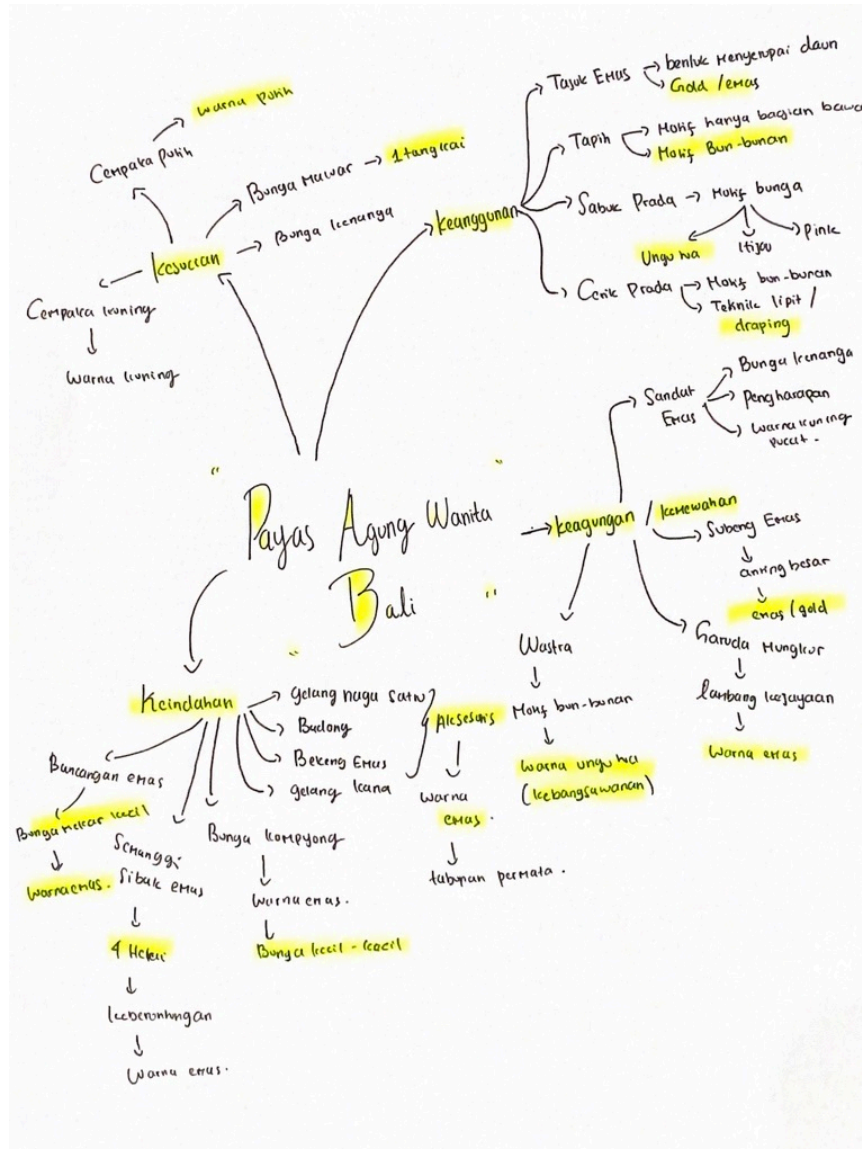 Warna putih
Cempaka putih
Bunga Mawar → 1 tangkai
Bunga kenanga
kesucian
Cempaka kuning
Warna kuning
keanggunan
Tajuk Emas → bentuk menyerupai daun
Gold / emas
Tapih → Motif hanya bagian bawa
Motif Bun-bunan
Sabuk Prada → Motif bunga
Ungu tua
Hijau
Pink
Cerik Prada → Motif bun-bunan
Teknik lipit /
draping
"Payas Agung Wanita
Bali"
→ keagungan / kemewahan
Sandat
Emas
Bunga kenanga
Pengharapan
Warna kuning
pucat.
Subeng Emas
anting besar
emas / gold
Garuda Mungkur
lambang kejayaan
Warna emas
Wastra
Motif bun-bunan
Warna ungu tua
(kebangsawanan)
Keindahan
Gelang naga satru
Badong
Bekeng Emas
gelang kana
Aksesoris
Warna
emas.
taburan permata.
Bancangan emas
Bunga mekar kecil
Warna emas.
Semanggi
Sibak emas
4 Helai
keberuntungan
Warna emas.
Bunga kompyong
Warna emas.
Bunga kecil - kecil